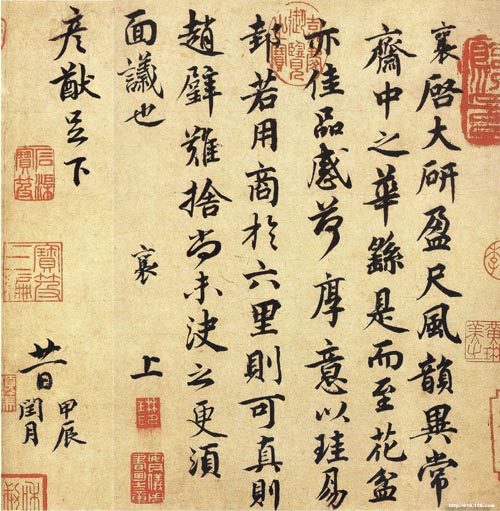 襄啓大研盈尺風韻異常
齋中之華繇是而至花盆
亦佳品感荷厚意以珪易
邽若用商於六里則可真則
趙璧難捨尚未決之更須
面議也
襄
上
彦猷足下
廿一日甲辰
閏月